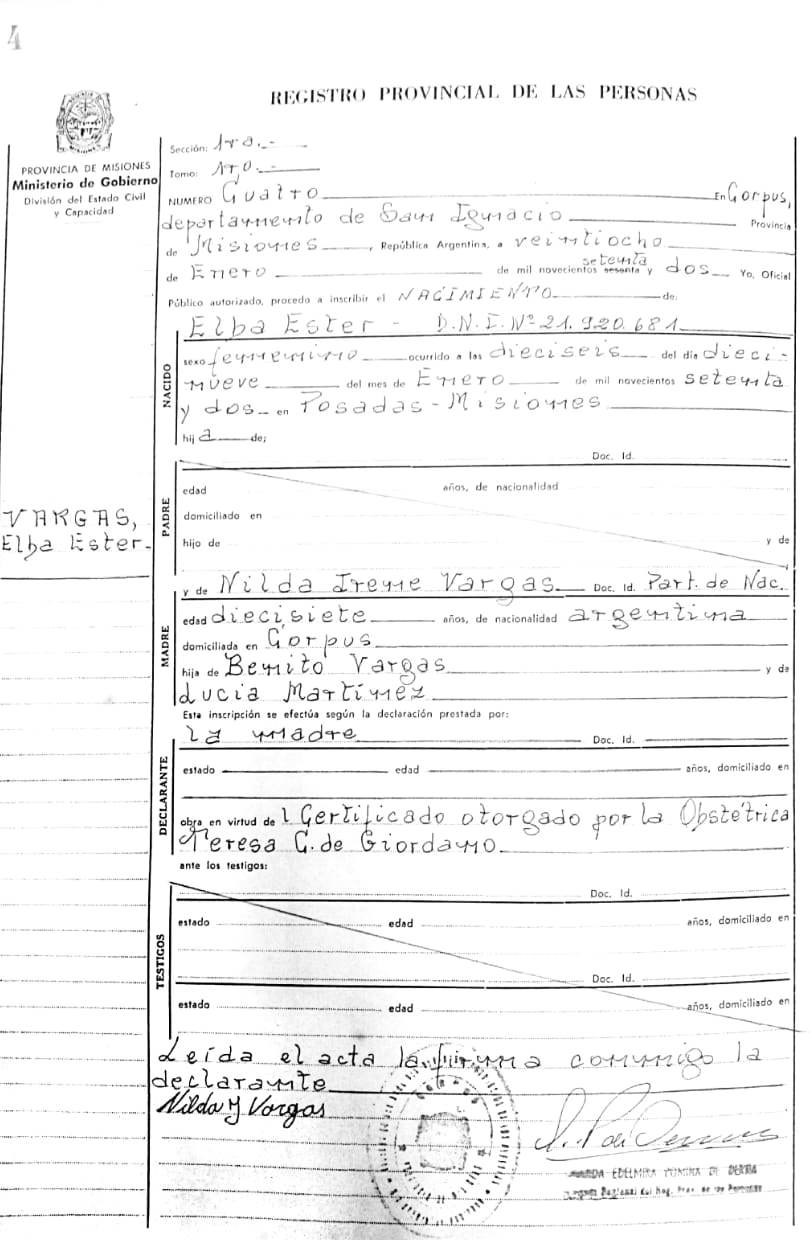 4
REGISTRO PROVINCIAL DE LAS PERSONAS
PROVINCIA DE MISIONES
Ministerio de Gobierno
División del Estado Civil
y Capacidad
Sección: 1ra.-
Tomo: 1ro.-
NUMERO Cuatro En Corpus,
departamento de San Ignacio Provincia
de Misiones, República Argentina, a veintiocho
setenta
de Enero de mil novecientos sesenta y dos Yo, Oficial
Público autorizado, procedo a inscribir el NACIMIENTO de:
NACIDO
Elba Ester - D.N.I. Nº 21.920.681
sexo femenino ocurrido a las dieciseis del día dieci-
nueve del mes de Enero de mil novecientos setenta
y dos en Posadas - Misiones
hija de;
VARGAS,
Elba Ester.-
PADRE
Doc. Id.
edad años, de nacionalidad
domiciliado en
hijo de y de
MADRE
y de Nilda Irene Vargas Doc. Id. Part. de Nac.
edad diecisiete años, de nacionalidad argentina
domiciliada en Corpus
hija de Benito Vargas y de
Lucia Martínez
Esta inscripción se efectúa según la declaración prestada por:
DECLARANTE
la madre Doc. Id.
estado edad años, domiciliado en
obra en virtud del Certificado otorgado por la Obstétrica
Teresa C. de Giordano
ante los testigos:
TESTIGOS
Doc. Id.
estado edad años, domiciliado en
Doc. Id.
estado edad años, domiciliado en
Leída el acta la firma conmigo la
declarante
Nilda Y Vargas
EDELMIRA DE